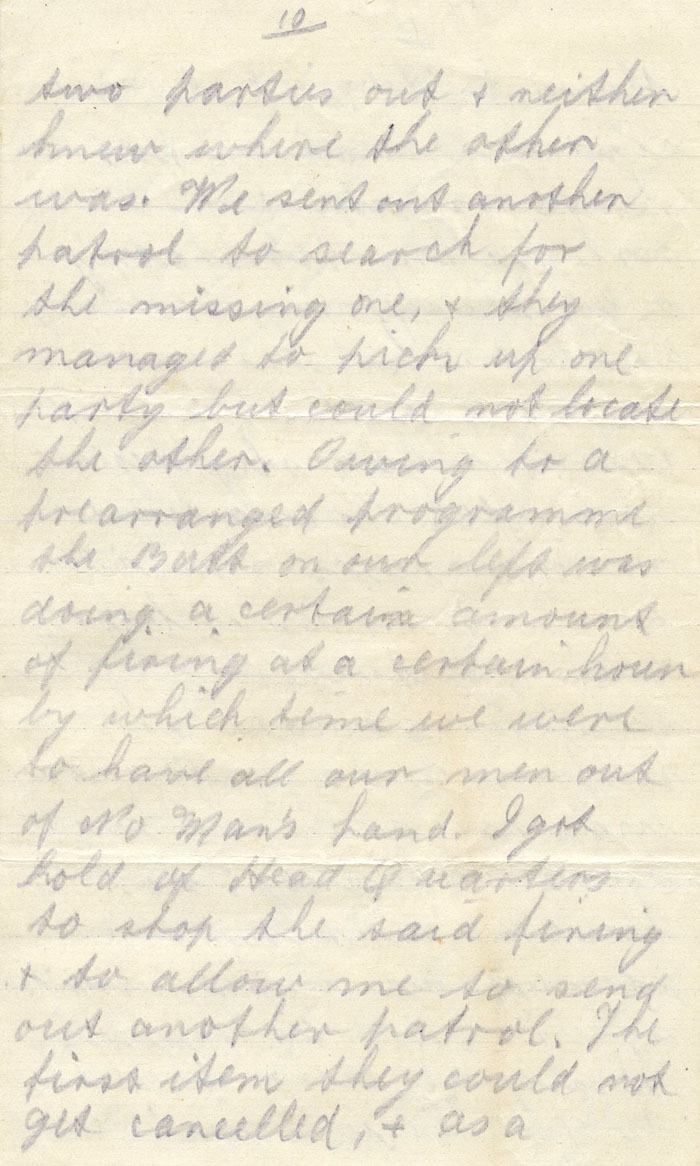 10
two parties out & neither
knew where the other
was. We sent out another
patrol to search for
the missing one, & they
managed to pick up one
party but could not locate
the other. Owing to a
prearranged programme
the Batt on our left was
doing a certain amount
of firing at a certain hour
by which time we were
to have all our men out
of No Man's Land. I got
hold of Head Quarters
to stop the said firing
& to allow me to send
out another patrol. The
first item they could not
get cancelled, & as a